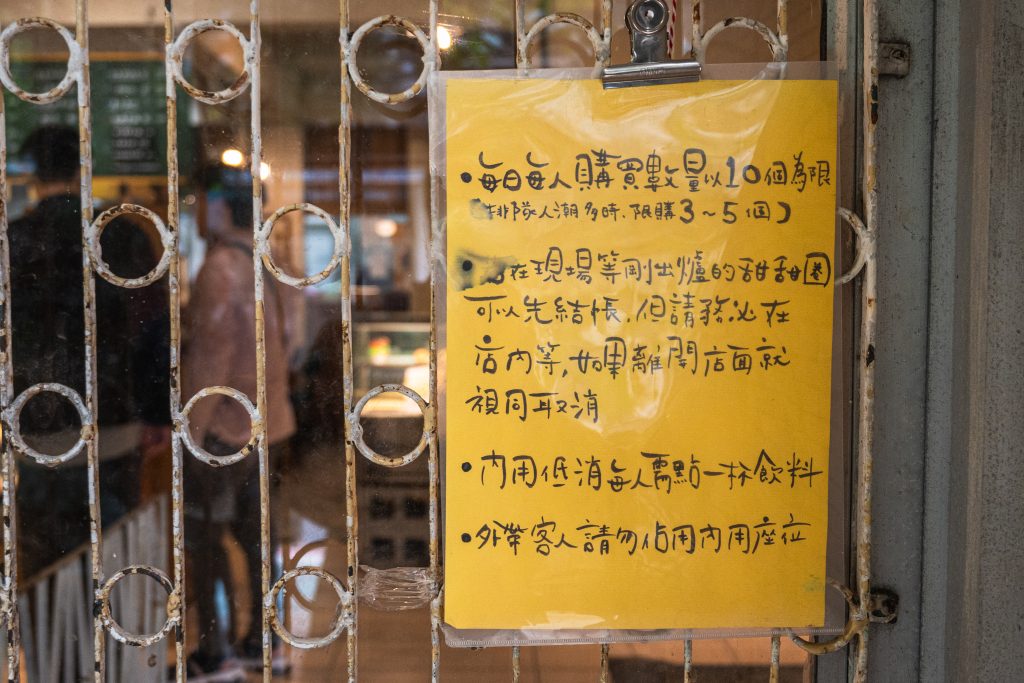 •每日每人購買數量以10個為限
(排隊人潮多時.限購3~5個)
•在現場等剛出爐的甜甜圈
可以先結帳.但請務必在
店內等,如果離開店面就
視同取消
•內用低消每人需點一杯飲料
•外帶客人請勿佔用內用座位